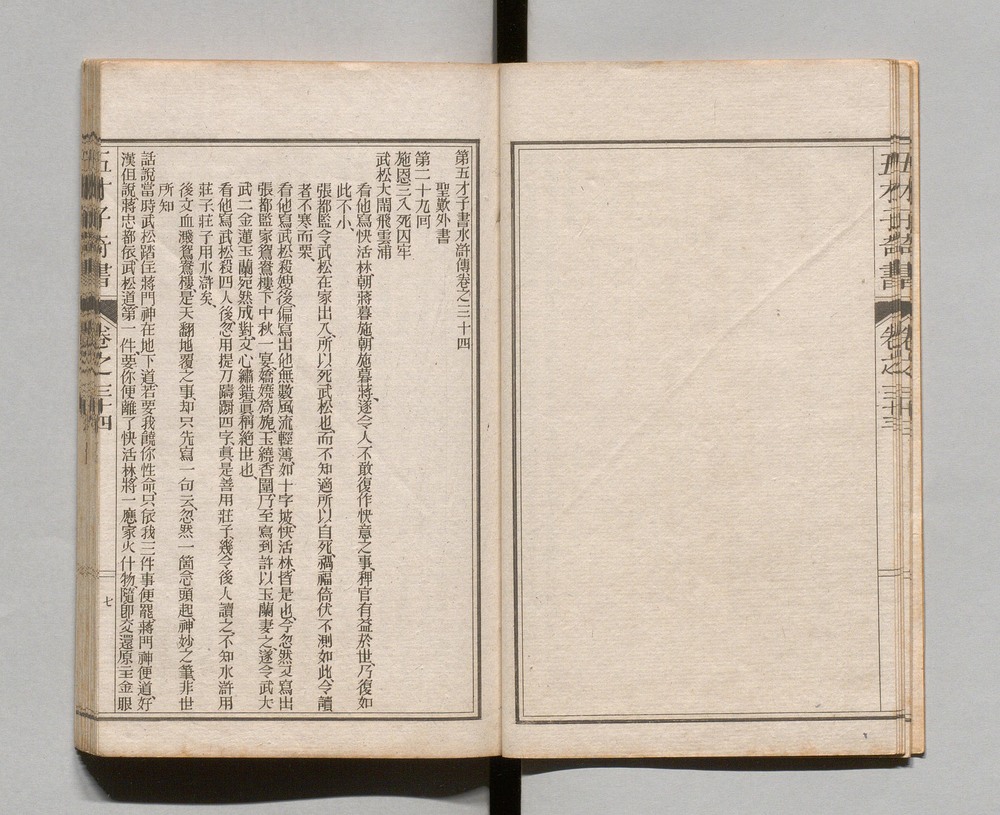 第五才子書水滸傳卷之三十四
聖歎外書
第二十九回
施恩三入死囚牢
武松大鬧飛雲浦
看他寫快活林朝蔣暮施朝施暮蔣、遂令人不敢復作快意之事、稗官有益於世、乃復如
此不小、
張都監令武松在家出入、所以死武松也、而不知適所以自死、禍福倚伏不測如此、令讀
者不寒而栗、
看他寫武松殺嫂後、偏寫出他無數風流輕薄、如十字坡、快活林、皆是也、今忽然又寫出
張都監家鴛鴦樓下中秋一宴、嬌嬈旖旎、玉繞香圍、乃至寫到許以玉蘭妻之、遂令武大
武二金蓮玉蘭宛然成對、文心繡錯、眞稱絕世也、
看他寫武松殺四人後、忽用提刀躊躇四字、眞是善用莊子、幾令後人讀之、不知水滸用
莊子、莊子用水滸矣、
後文血濺鴛鴦樓、是天翻地覆之事、却只先寫一句云、忽然一箇念頭起、神妙之筆、非世
所知
話說當時武松踏住蔣門神在地下道、若要我饒你性命、只依我三件事便罷、蔣門神便道、好
漢但說、蔣忠都依、武松道、第一件、要你便離了快活林、將一應家火什物、隨卽交還原主金眼
五才子奇書
卷之三十四
七
五才子奇書
卷之三十三